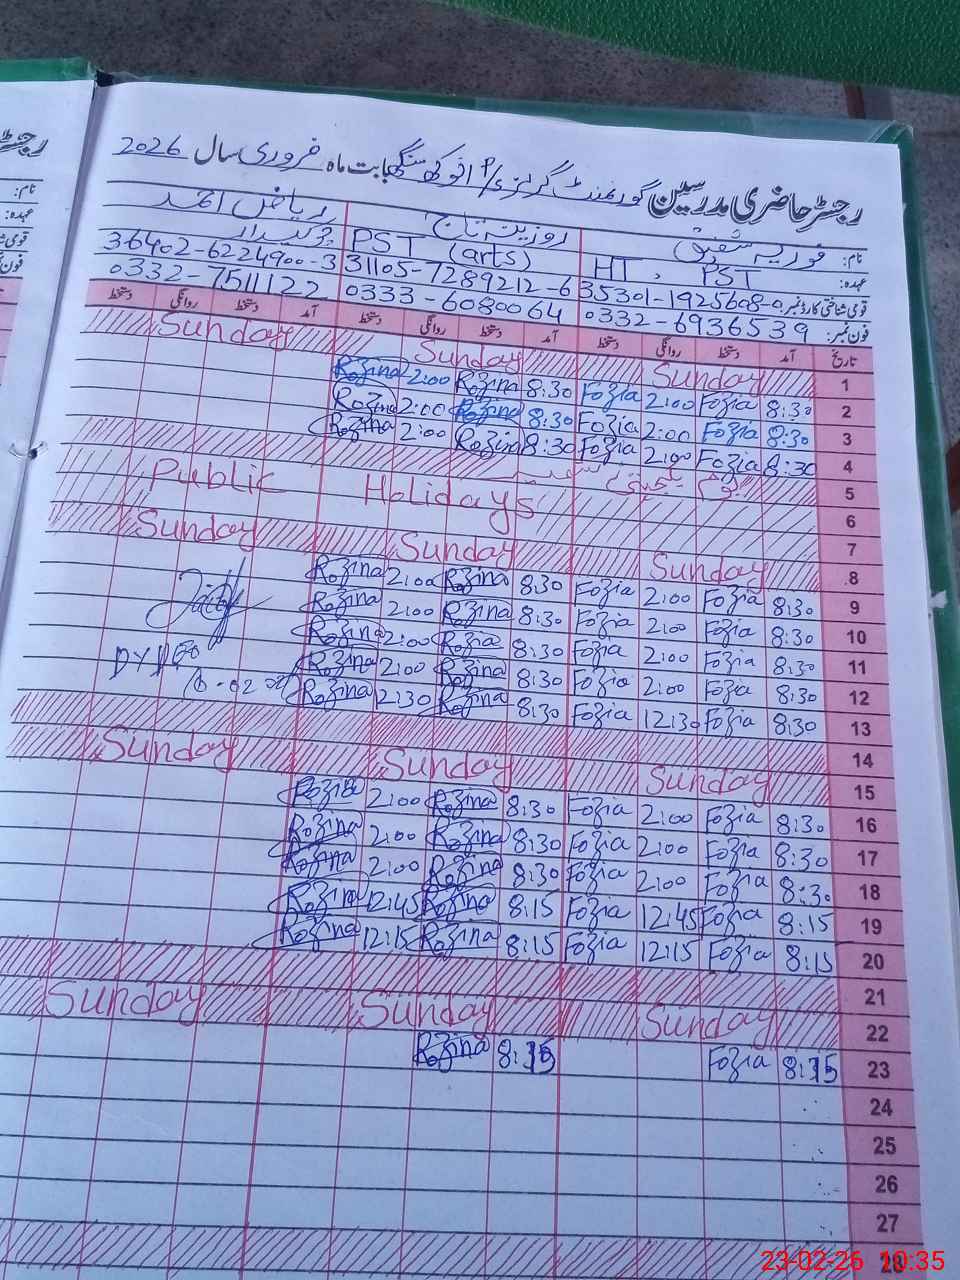 رجسٹر حاضری مدرسین گورنمنٹ گرلز P/S انوکھ سنگھ بابت ماہ فروری سال 2026
نام: فوزیہ شفیق روزینہ تاج ریاض احمد
عہدہ: HT, PST PST (arts) چوکیدار
قومی شناختی کارڈ نمبر: 35301-1925608-0 31105-7289212-6 36402-6224900-3
فون نمبر: 0332-6936539 0333-6080064 0332-7511122
تاریخ آمد دستخط روانگی دستخط آمد دستخط روانگی دستخط آمد دستخط روانگی دستخط
1 Sunday Sunday Sunday
2 8:30 Fozia 2:00 Fozia 8:30 Rozina 2:00 Rozina
3 8:30 Fozia 2:00 Fozia 8:30 Rozina 2:00 Rozina
4 8:30 Fozia 2:00 Fozia 8:30 Rozina 2:00 Rozina
5 یوم یکجہتی کشمیر
6 Public Holidays
7
8 Sunday Sunday Sunday
9 8:30 Fozia 2:00 Fozia 8:30 Rozina 2:00 Rozina
10 8:30 Fozia 2:00 Fozia 8:30 Rozina 2:00 Rozina
11 8:30 Fozia 2:00 Fozia 8:30 Rozia 2:00 Rozina
12 8:30 Fozia 2:00 Fozia 8:30 Rozina 2:00 Rozina
13 8:30 Fozia 12:30 Fozia 8:30 Rozina 12:30 Rozina
14
15 Sunday Sunday Sunday
16 8:30 Fozia 2:00 Fozia 8:30 Rozina 2:00 Rozina
17 8:30 Fozia 2:00 Fozia 8:30 Rozina 2:00 Rozina
18 8:30 Fozia 2:00 Fozia 8:30 Rozina 2:00 Rozina
19 8:15 Fozia 12:45 Fozia 8:15 Rozina 12:45 Rozina
20 8:15 Fozia 12:15 Fozia 8:15 Rozina 12:15 Rozina
21
22 Sunday Sunday Sunday
23 8:15 Fozia 8:15 Rozina
24
25
26
27
28
23-02-26 10:35